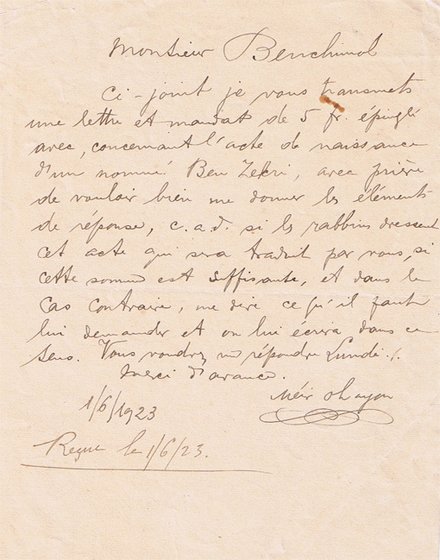 Monsieur Benchimol
Ci-joint je vous transmets
une lettre et mandat de 5 fr. épinglé
avec, concernant l'acte de naissance
d'un nommé Ben Zekri, avec prière
de vouloir bien me donner les éléments
de réponse, c.a.d. si les rabbins dressent
cet acte qui sera traduit par vous, si
cette somme est suffisante, et dans le
cas contraire, me dire ce qu'il faut
lui demander et on lui écrira dans ce
sens. Vous voudrez me répondre Lundi.
Merci d'avance.
1/6/1923
Méir Ohayon
Reçue le 1/6/23.